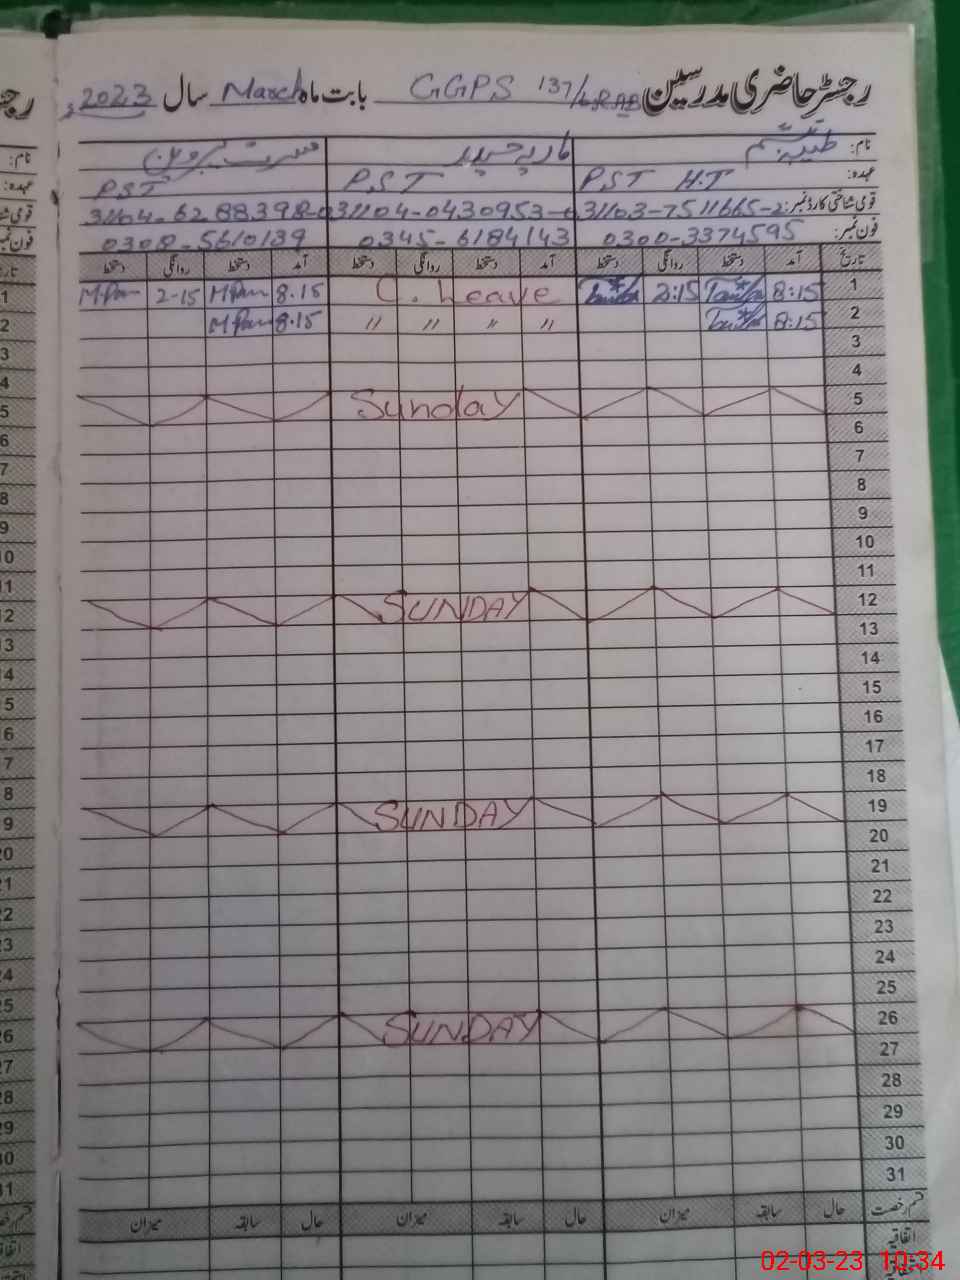 رجسٹر حاضری مدرسین GGPS 137/ بابت ماہ March سال 2023ء
نام: طیبہ تبسم ماریہ حیدر مسرت پروین
عہدہ: PST H.T PST PST
قومی شناختی کارڈ نمبر: 31103-7511665-2 31104-0430953- 31104-6288398-
فون نمبر: 0300-3374595 0345-6184143 0308-5610139
تاریخ آمد دستخط روانگی دستخط آمد دستخط روانگی دستخط آمد دستخط روانگی دستخط
1 8:15 2:15 C. Leave 8.15 2-15
2 8:15 〃 〃 〃 〃 8.15
3
4
5 Sunday
6
7
8
9
10
11
12 SUNDAY
13
14
15
16
17
18
19 SUNDAY
20
21
22
23
24
25
26 SUNDAY
27
28
29
30
31
قسم رخصت حال سابقہ میزان حال سابقہ میزان حال سابقہ میزان
اتفاقیہ
02-03-23 10:34